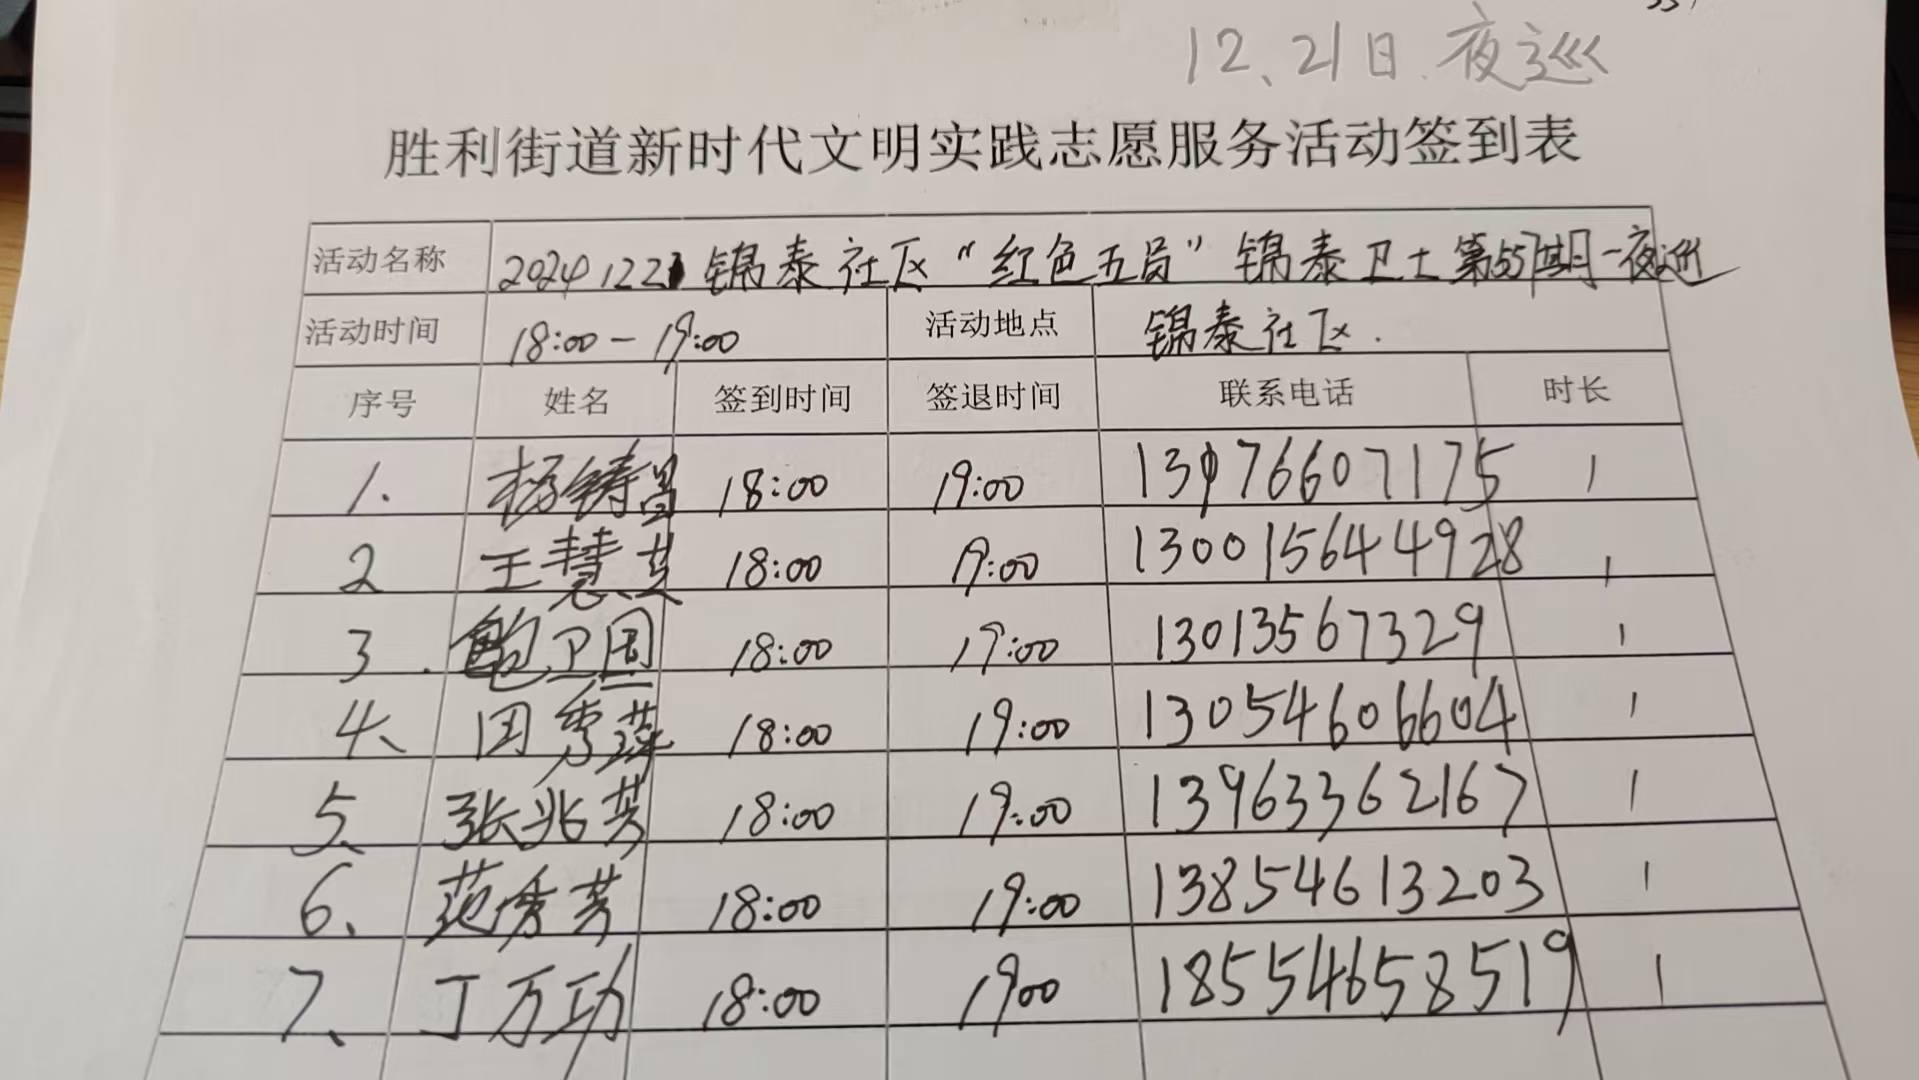 12、21日.夜巡
胜利街道新时代文明实践志愿服务活动签到表
活动名称 20241221 锦泰社区“红色五员”锦泰卫士第557期-夜巡
活动时间 18:00-19:00 活动地点 锦泰社区.
序号 姓名 签到时间 签退时间 联系电话 时长
1. 杨铸昌 18:00 19:00 13176607175 1
2 王慧英 18:00 19:00 130015644928 1
3. 鲍卫国 18:00 19:00 13013567329 1
4、 田秀萍 18:00 19:00 13054606604 1
5、 张兆芳 18:00 19:00 13963362167 1
6、 范秀芳 18:00 19:00 13854613203 1
7、 丁万功 18:00 1900 18554658519 1